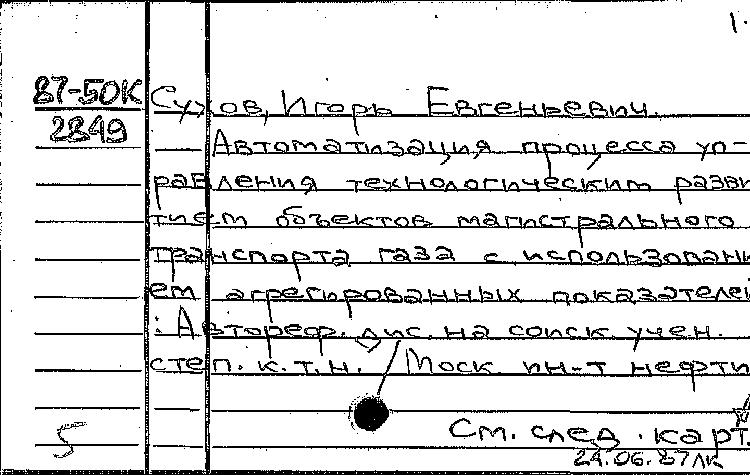 1.
87-50К
2849
Сухов, Игорь Евгеньевич.
Автоматизация процесса уп-
равления технологическим разви
тием объектов магистрального
транспорта газа с использовани
ем агрегированных показателей
: Автореф. дис. на соиск. учен.
степ. к.т.н. Моск. ин-т нефти
См. след. карт.
5
24.06.87лк